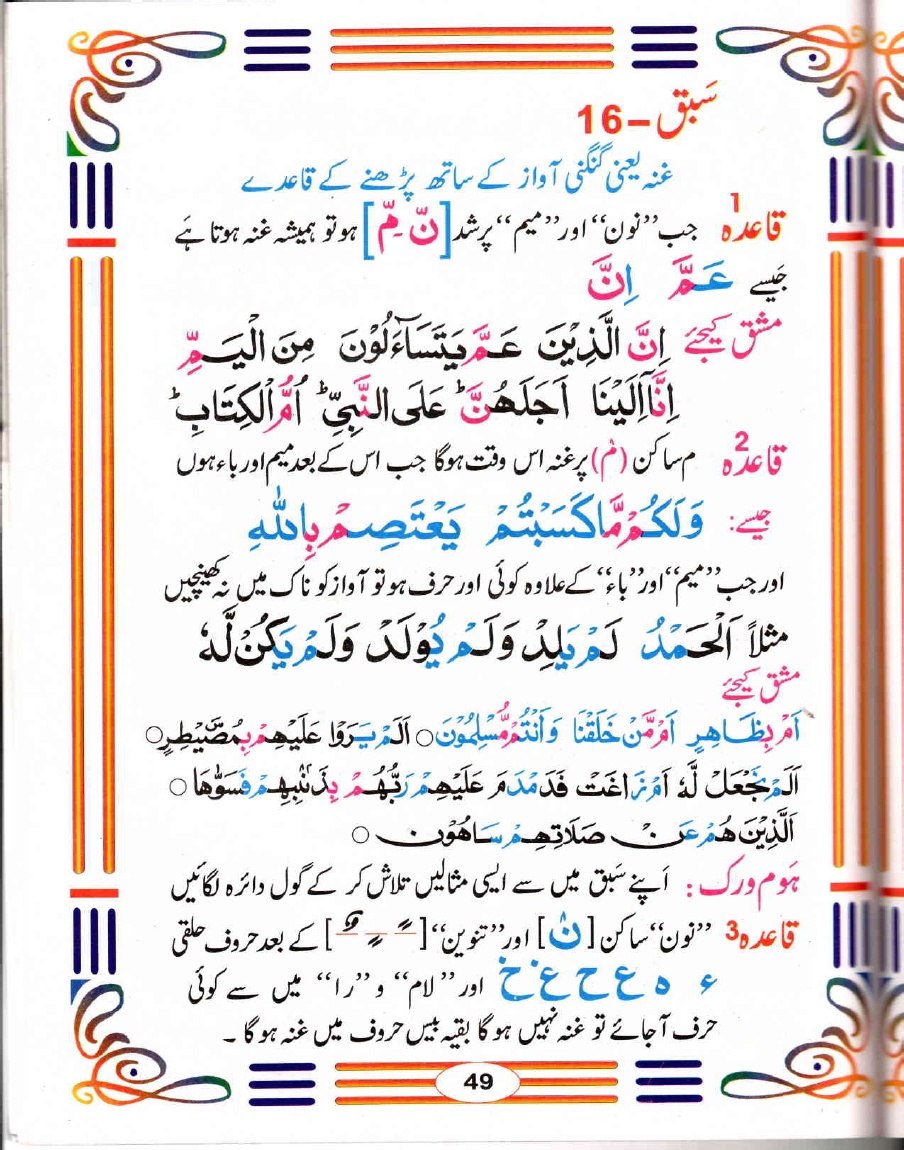 سَبق – 16
غنہ یعنی گنگنی آواز کے ساتھ پڑھنے کے قاعدے
قاعدہ 1 جب ”نون“ اور ”میم“ پر شد [نّ ۔ مّ] ہو تو ہمیشہ غنہ ہوتا ہے
جیسے عَمَّ اِنَّ
مشق کیجئے اِنَّ الَّذِيْنَ عَمَّ يَتَسَآءَلُوْنَ مِنَ الْيَمِّ
اِنَّآ اِلَيْنَا اَجَلَهُنَّ ؕ عَلَى النَّبِيِّ ؕ اُمُّ الْكِتَابِ ؕ
قاعدہ 2 م ساکن (مْ) پر غنہ اس وقت ہوگا جب اس کے بعد میم اور باء ہوں
جیسے: وَلَكُمْ مَّا كَسَبْتُمْ يَعْتَصِمْ بِاللّٰهِ
اور جب ”میم“ اور ”باء“ کے علاوہ کوئی اور حرف ہو تو آواز کو ناک میں نہ کھینچیں
مثلاً اَلْحَمْدُ لَمْ يَلِدْ وَلَمْ يُوْلَدْ وَلَمْ يَكُنْ لَّهٗ
مشق کیجئے
اَمْ بِظَاهِرٍ اَمْ مَّنْ خَلَقْنَا وَاَنْتُمْ مُّسْلِمُوْنَ ○ اَلَمْ يَرَوْا عَلَيْهِمْ بِمُصَّيْطِرٍ ○
اَلَمْ نَجْعَلْ لَّهٗ اَمْ زَاغَتْ فَدَمْدَمَ عَلَيْهِمْ رَبُّهُمْ بِذَنْۢبِهِمْ فَسَوّٰهَا ○
الَّذِيْنَ هُمْ عَنْ صَلَاتِهِمْ سَاهُوْنَ ○
ہوم ورک : اپنے سَبق میں سے ایسی مثالیں تلاش کر کے گول دائرہ لگائیں
قاعدہ 3 ”نون“ ساکن [نْ] اور ”تنوین“ [ ً ٍ ٌ ] کے بعد حروف حلقی
ء ہ ع ح غ خ اور ”لام“ و ”را“ میں سے کوئی
حرف آ جائے تو غنہ نہیں ہو گا بقیہ بیس حروف میں غنہ ہو گا ۔
49